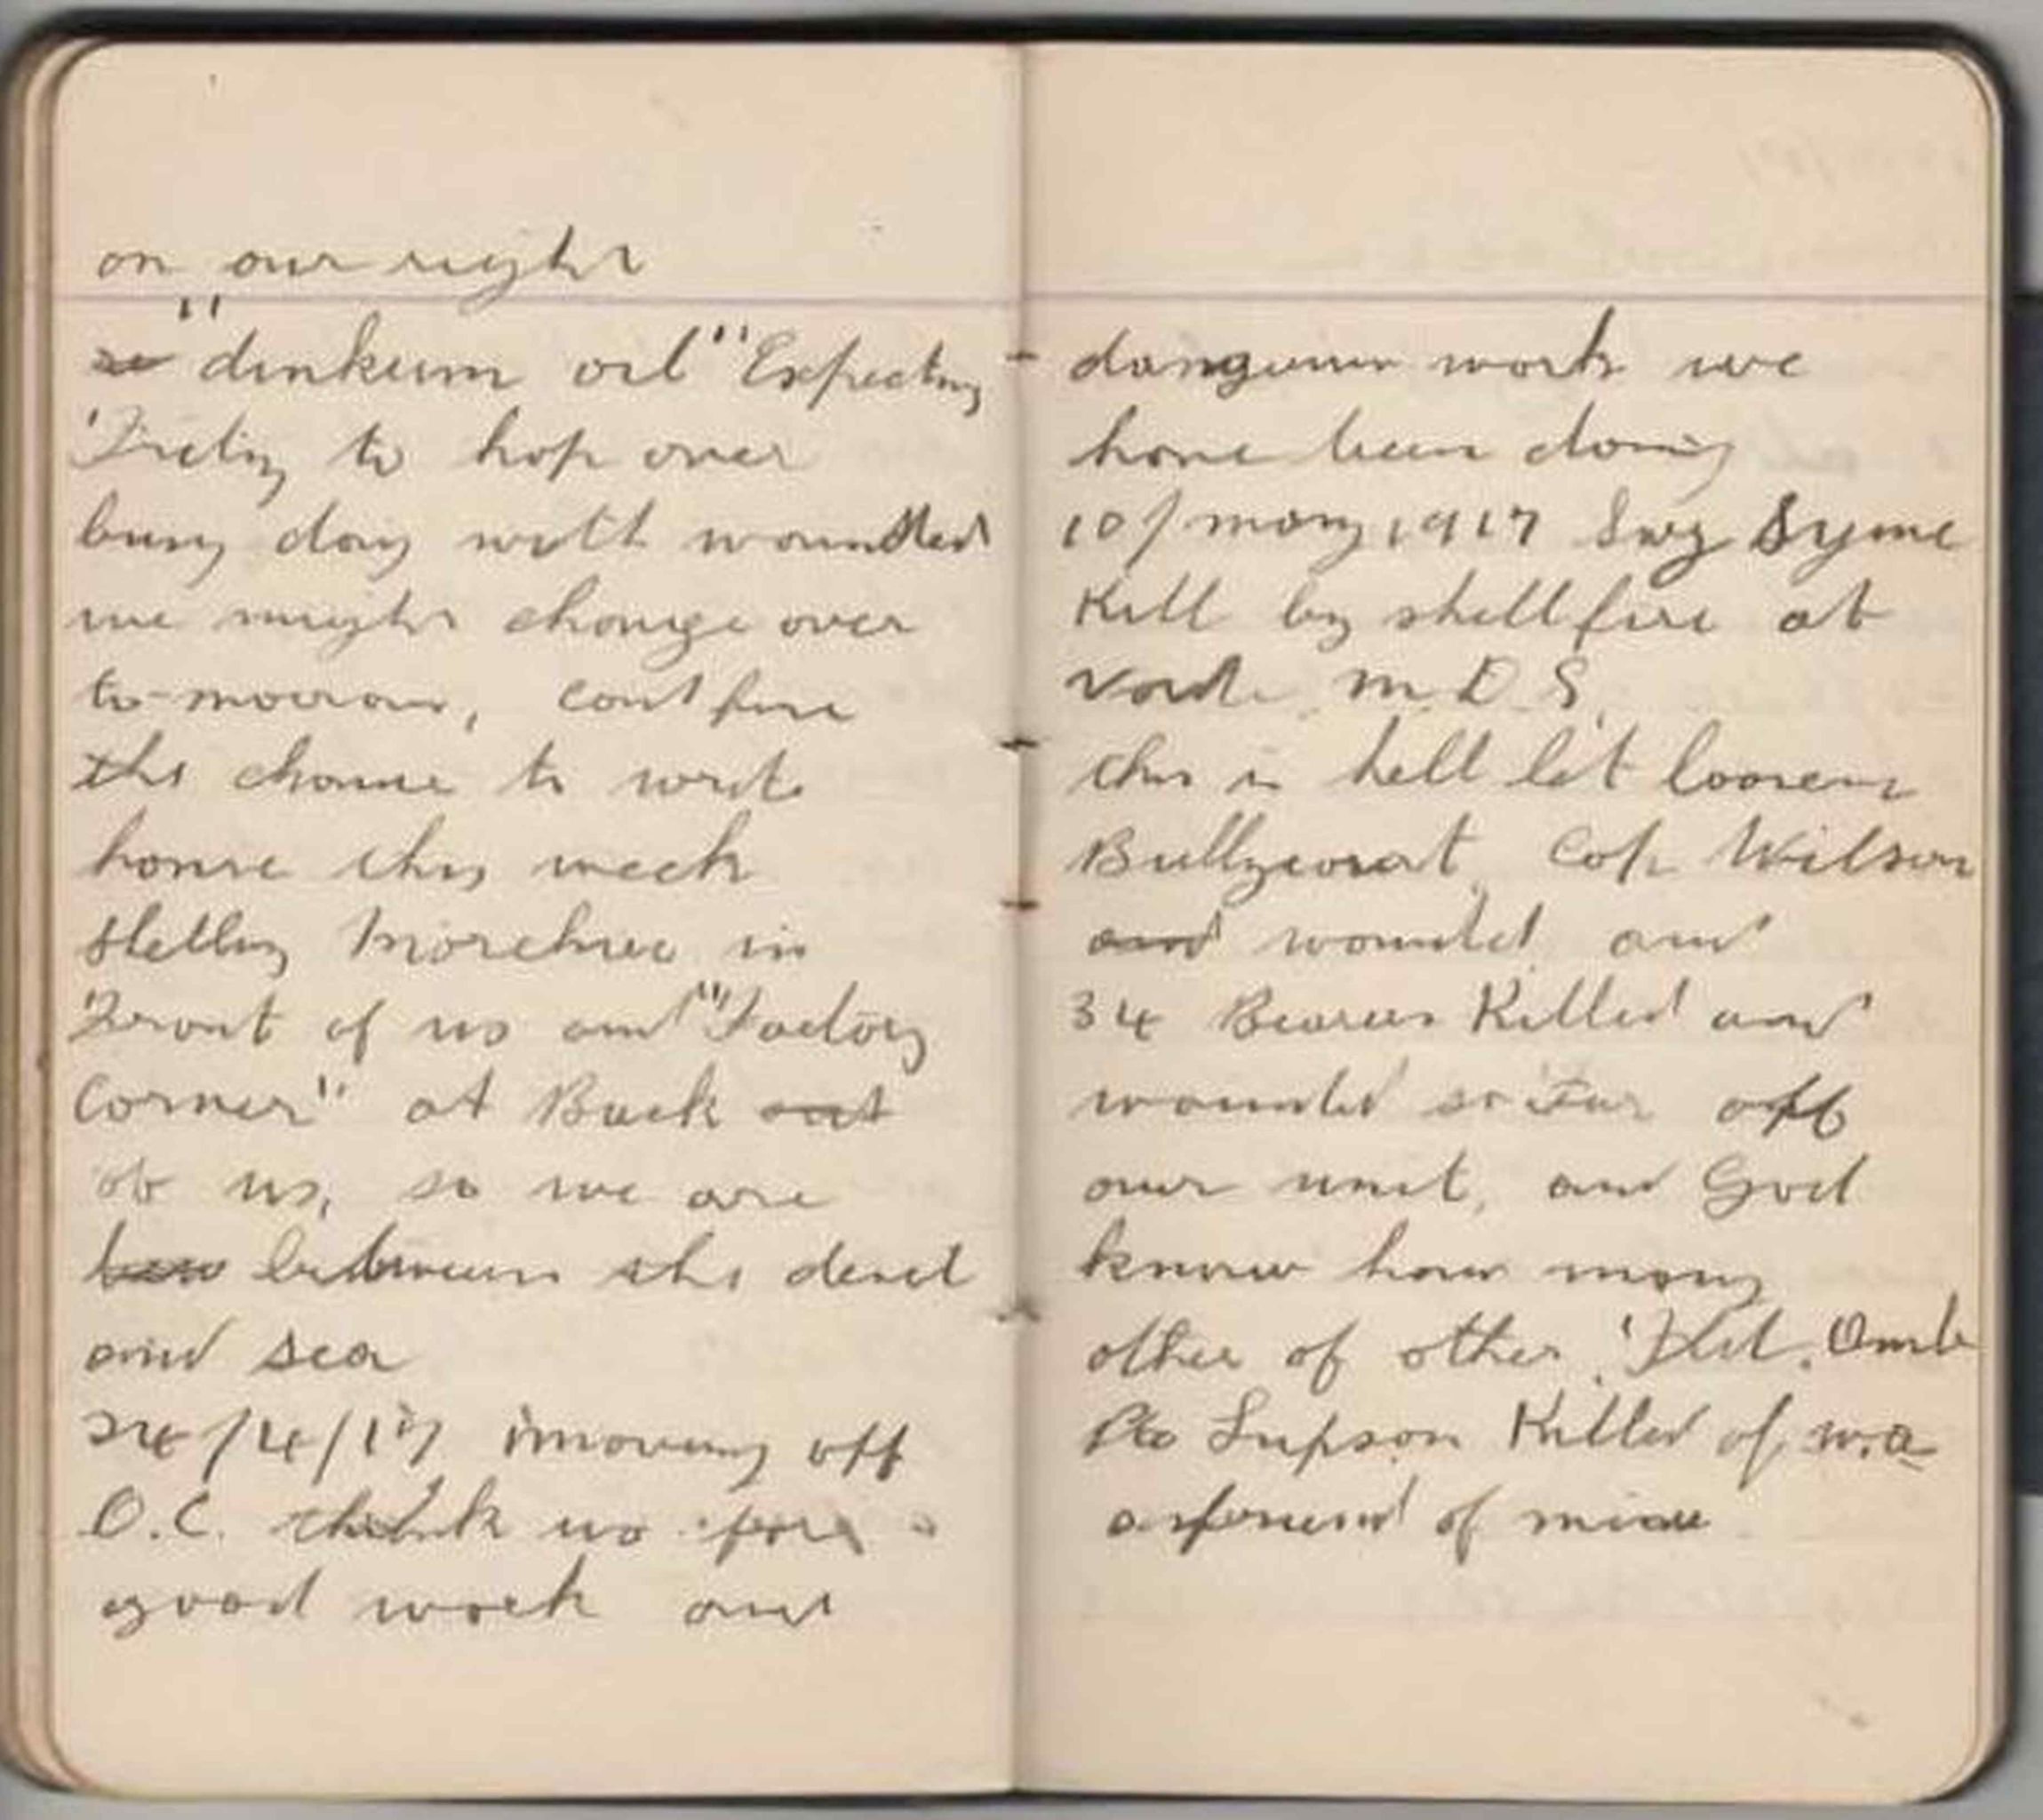 on our right
"dinkum oil" Expecting
Fritz to hop over
busy day with wounded
we might change over
to-morrow, cont find
the chance to write
home this week
shelling Morchies in
Front of us and "Factory
Corner" at Back out
of us, so we are
between the devil
and sea
24/4/17 moving off
O.C. think us for
good work and
dangerous work we
have been doing
10/may 1917 Syme
Kill by shellfire at
M.D.S.
this is hell let loose
Bullycourt Cop Wilson
and wounded and
34 Bearers Killed and
wounded so Far off
our unit, and God
know how many
other of other Fld. Amb
Pte Supson Killed of W.A
a friend of mine